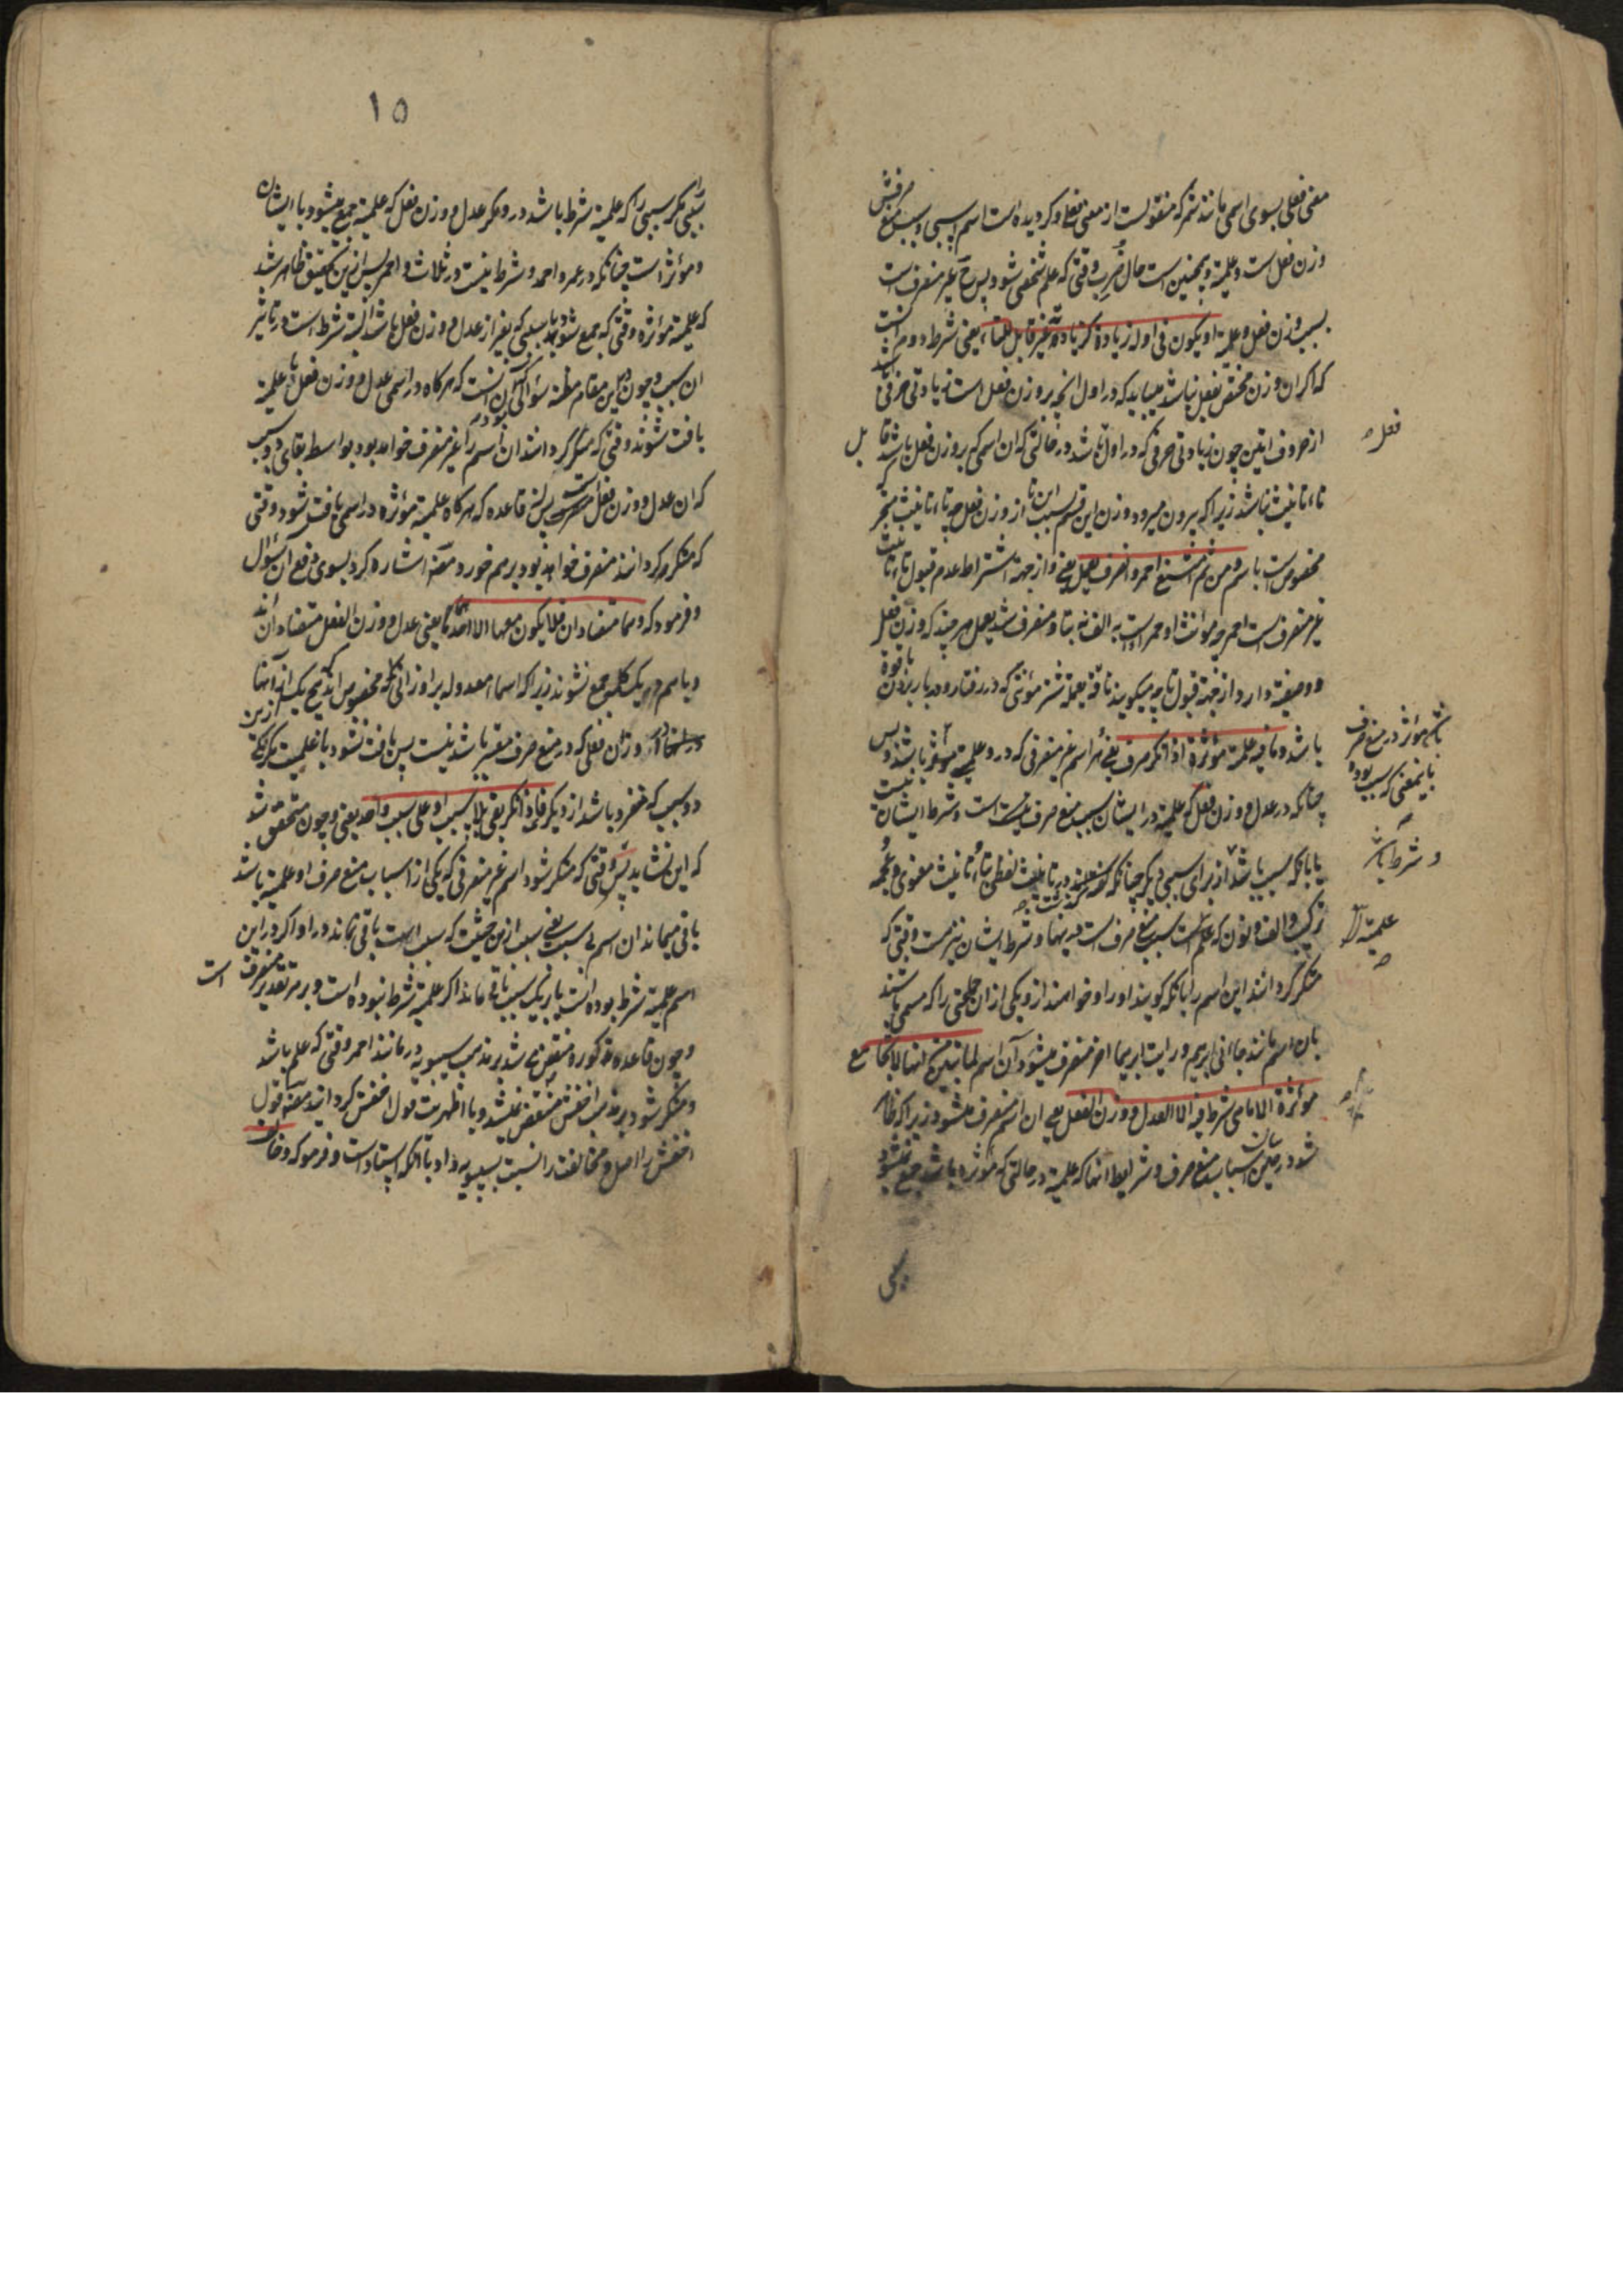 معنی فعلی بسوی اسمی مانند شمر که منقولست از معنی فعلی و کردیده است اسم اسپی و سبب منع صرفش
وزن فعل است و علمیة و همچنین است حال ضرب وقتی که علم شخصی شود پس ح غیر منصرف است
بسبب وزن فعل و علمیة او یکون فی اوله زیادة کزیادته غیر قابل للتاء یعنی شرط دوم آنست
که اگر ان وزن مختص بفعل نباشد میباید که در اول آنچه بر وزن فعل است زیادتی حرفی باشد
از حروف اتین چون زیادتی حرفی که در اول باشد در حالتی که ان اسمی که بر وزن فعل باشد قابل
تاء تانیث نباشد زیرا که بیرون میرود وزن این قسم بسبب این تا از وزن فعل چه تاء تانیث متحرکه
مخصوص است باسم و من ثم امتنع احمر و انصرف یعمل یعنی و از جهة اشتراط عدم قبول تاء تانیث
غیر منصرف است احمر چه مؤنث او حمراست به الف نه بتا و منصرف شد یعمل هر چند که وزن فعل
و وصفیة دارد از جهة قبول تا چه میکویند ناقة یعملة شتر مؤنثی که در رفتار و در بار بردن باقوة
باشد و ما فیه علمیة مؤثرة اذا نکر صرف یعنی هر اسم غیر منصرفی که در و علمیة مؤثر باشد و پس
چنانکه در عدل و وزن فعل که علمیة در ایشان سبب منع صرف است و شرط ایشان نیست
یا بانکه سبب باشد از برای سببی دیگر چنانکه در تانیث لفظی بتاء و تانیث معنوی و عجمه
ترکیب و الف و نون که علم است سبب منع صرف است در اینها و شرط ایشان نیز هست وقتی که
منکر گردانند این اسم را بانکه گویند او را و خواهند از و یکی از ان جماعتی را که مسمی باشند
بان اسم مانند جاءنی ابرهیم و رایت ابرهیما اخر منصرف میشود آن اسم لما تبین من انها لا تجامع
مؤثرة الا ما هی شرط فیه الا العدل و وزن الفعل یعنی ان اسم منصرف میشود زیرا که ظاهر
شد در بیان اسباب منع صرف و شرایط انها که علمیة در حالتی که مؤثره باشد جمع نمیشود
فعل
باشد مؤثر در منع صرف
باینمعنی که سبب بوده
و شرط باشد
علمیة
سببی
۱۵
بسببی مگر سببی را که علمیة شرط باشد در و مگر عدل و وزن فعل که علمیة جمع میشود با ایشان
و مؤثر است چنانکه در عمر و احمد و شرط نیست در ثلاث و احمر پس ازین تحقیق ظاهر شد
که علمیة مؤثره وقتی که جمع شود با سببی که بغیر از عدل و وزن فعل باشد البته شرط است در تاثیر
ان سبب و چون درین مقام مظنه سؤالی بود و آن آنست که هرگاه در اسمی عدل و وزن فعل با علمیة
یافت شوند وقتی که منکر گردانند ان اسم را غیر منصرف خواهد بود بواسطه بقای دو سبب
که ان عدل و وزن فعل است پس این قاعده که هرگاه علمیة مؤثره در اسمی یافت شود وقتی
که منکر گردانند منصرف خواهد بود برهم خورد مصنف اشاره کرد بسوی دفع آن سؤال
و فرمود که و هما متضادان فلا یکون معها الا احدهما یعنی عدل و وزن الفعل متضادانند
و با هم در یک کلمه جمع نشوند زیرا که اسماء معدوله بر اوزانی که مخصوص اند هیچ یک از آنها
وزن فعلی که در منع صرف معتبر باشد نیست پس یافت نشود با علمیت مگر یکی ازین
دو سبب که منفرد باشد از دیگر فاذا نکر بقی بلا سبب او علی سبب واحد یعنی و چون متحقق شد
که این نشاید پس وقتی که منکر شود اسم غیر منصرفی که یکی از اسباب منع صرف او علمیة باشد
باقی میماند ان اسم بی سبب یعنی سبب ازین حیثیت که سبب است باقی نماند در او اگر در این
اسم علمیة شرط بوده است یا بر یک سبب باقی ماند اگر علمیة شرط نبوده است و بر هر تقدیر منصرف است
و چون قاعده مذکوره منتقض میشد بر مذهب سیبویه در مانند احمر وقتی که علم باشد
و منکر شود بر مذهب اخفش منتقض نمیشد و با اظهریت قول اخفش گردانید مصنف قول
اخفش را اصل و مخالفت را نسبت بسیبویه داد با آنکه استاد است و فرمود که و خالف